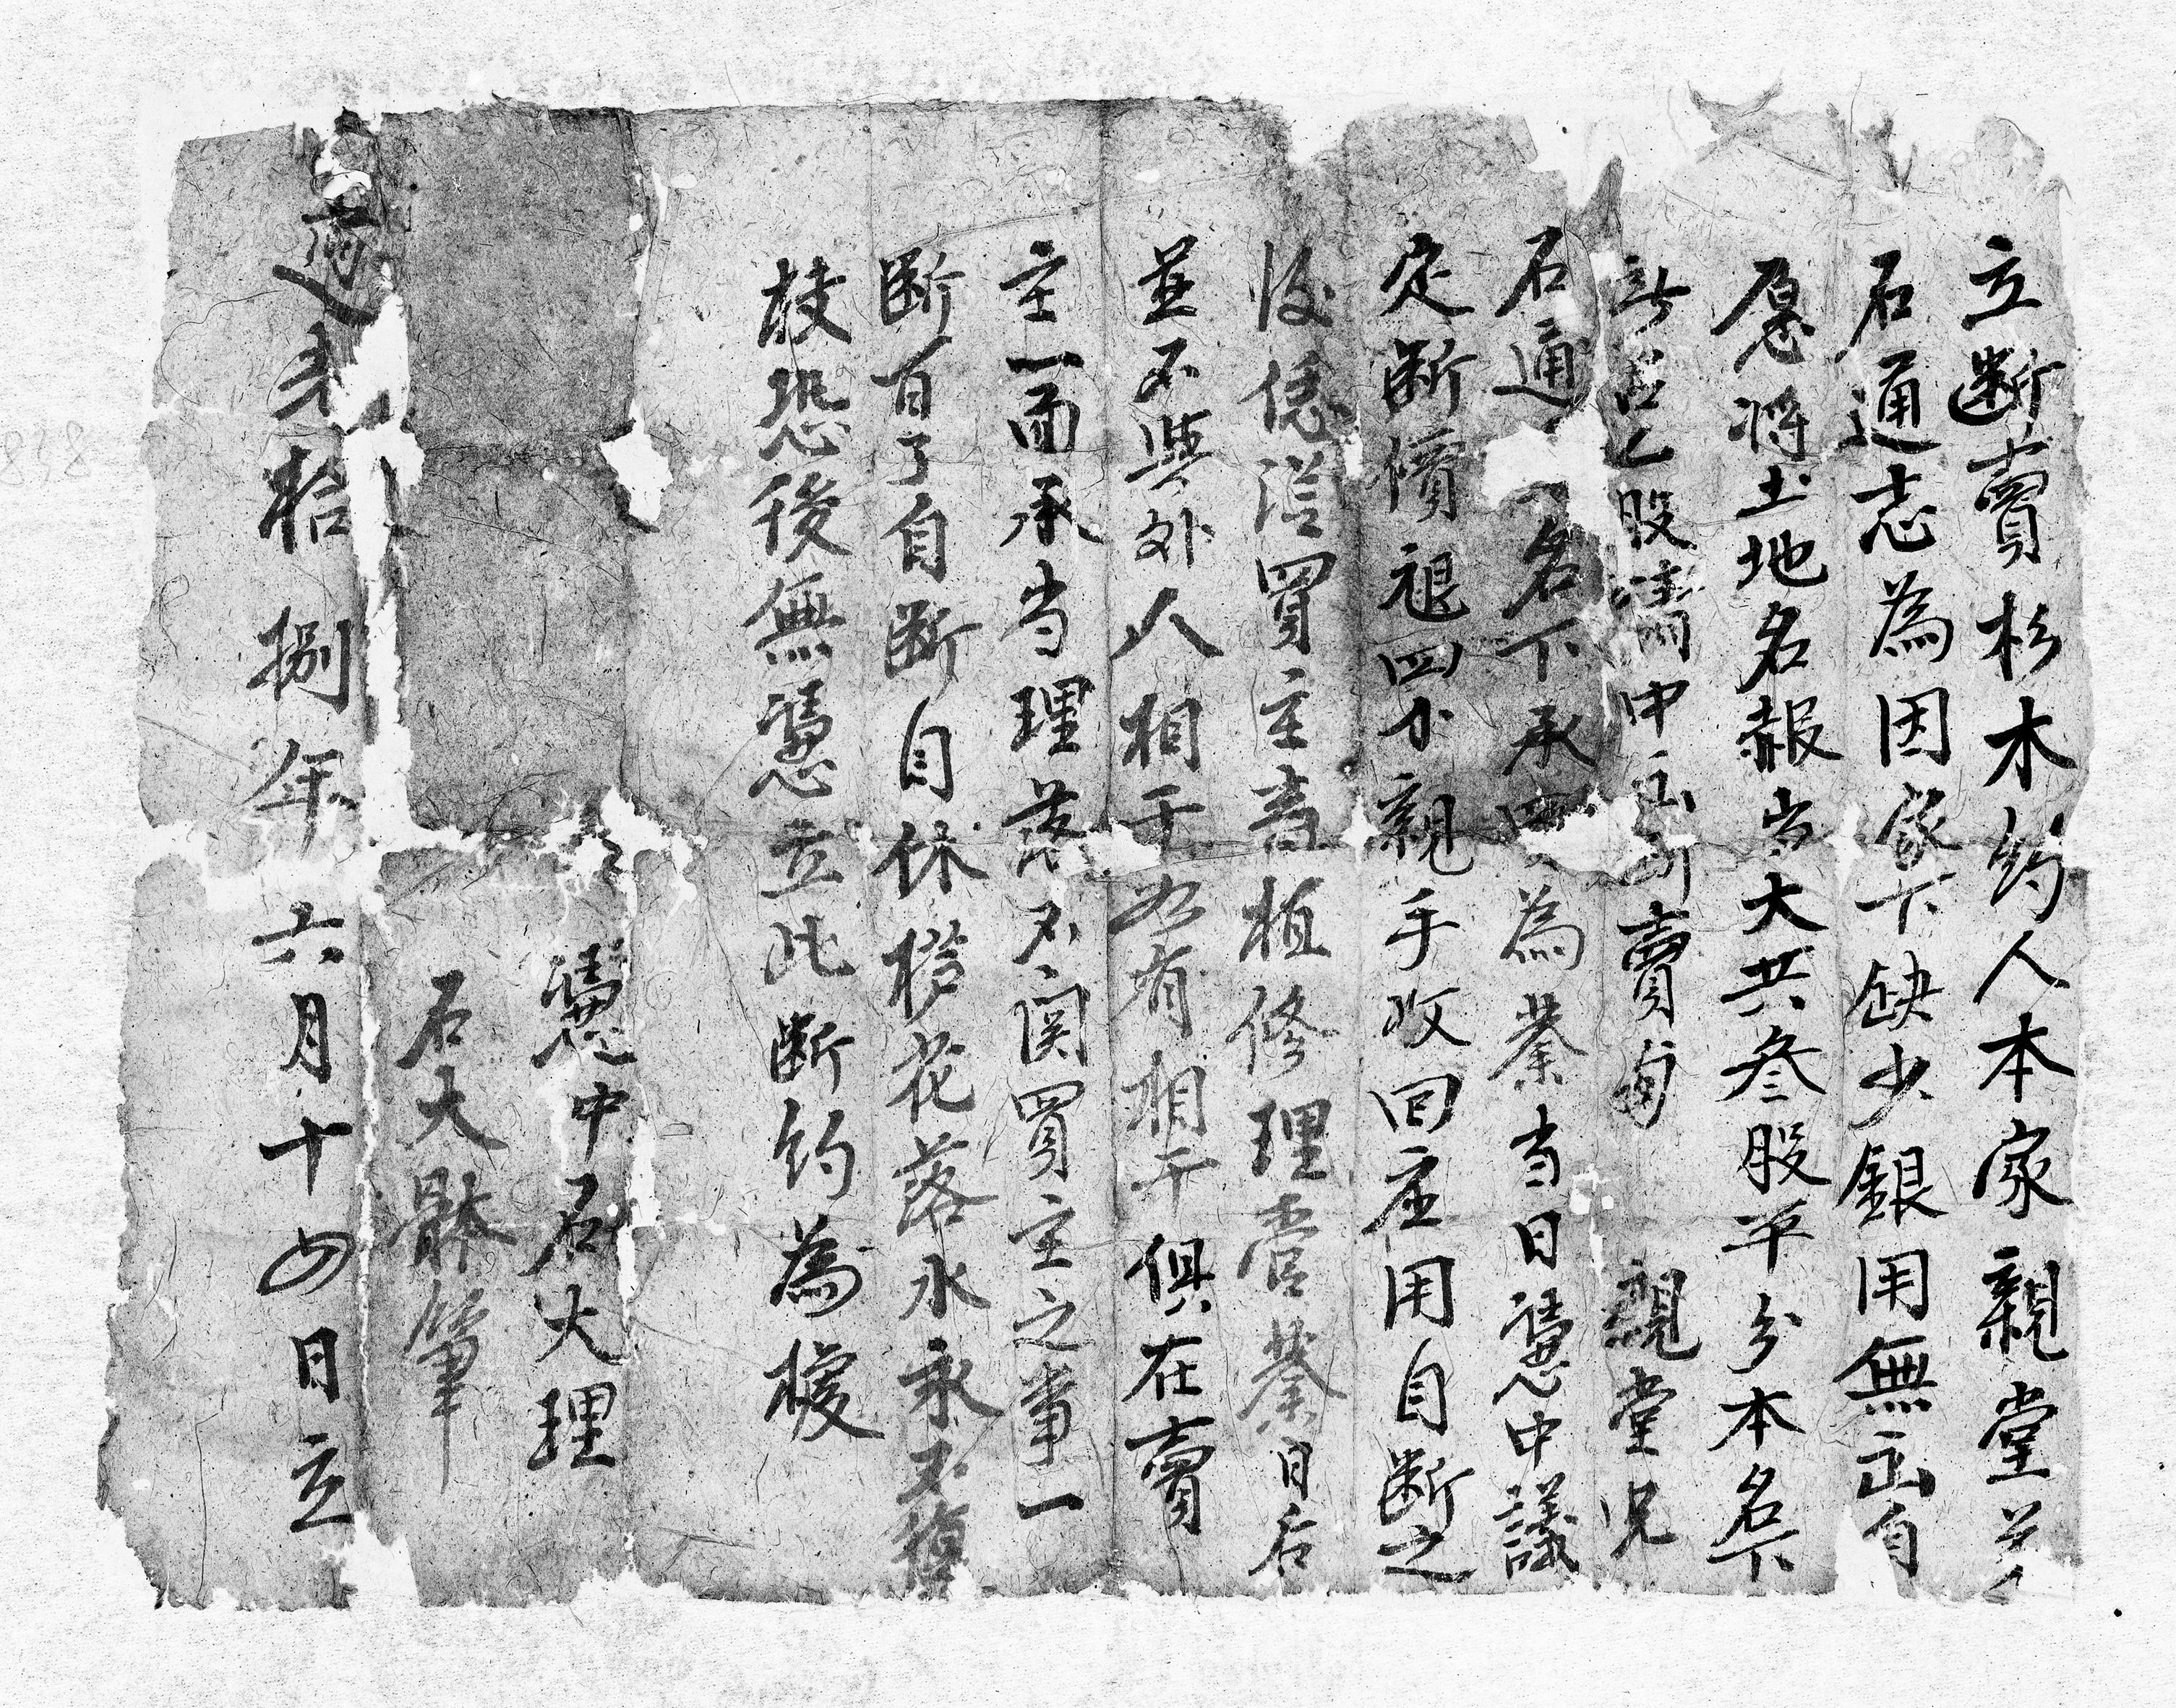 立断賣杉木約人本家親堂弟
石通志為因家下缺少銀用無函自
愿将土地名報当大共叁股平分本名下
占乙股清中函断賣與親堂兄
石通名下承買為業当日憑中議
定断價銀四分親手收回应用自断之
後悉從買主畜植修理管業日后
並不與外人相干如有相干俱在賣
主一面承当理落不関買主之事一
断百了自断自休移花落水永不復
故恐後無憑立此断約為據
憑中石大理
石大 筆
道光拾捌年六月十四日立